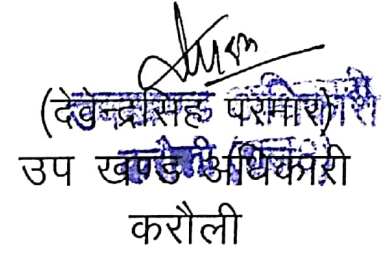 (देवेन्द्रसिंह परमार)
उप खण्ड अधिकारी
करौली